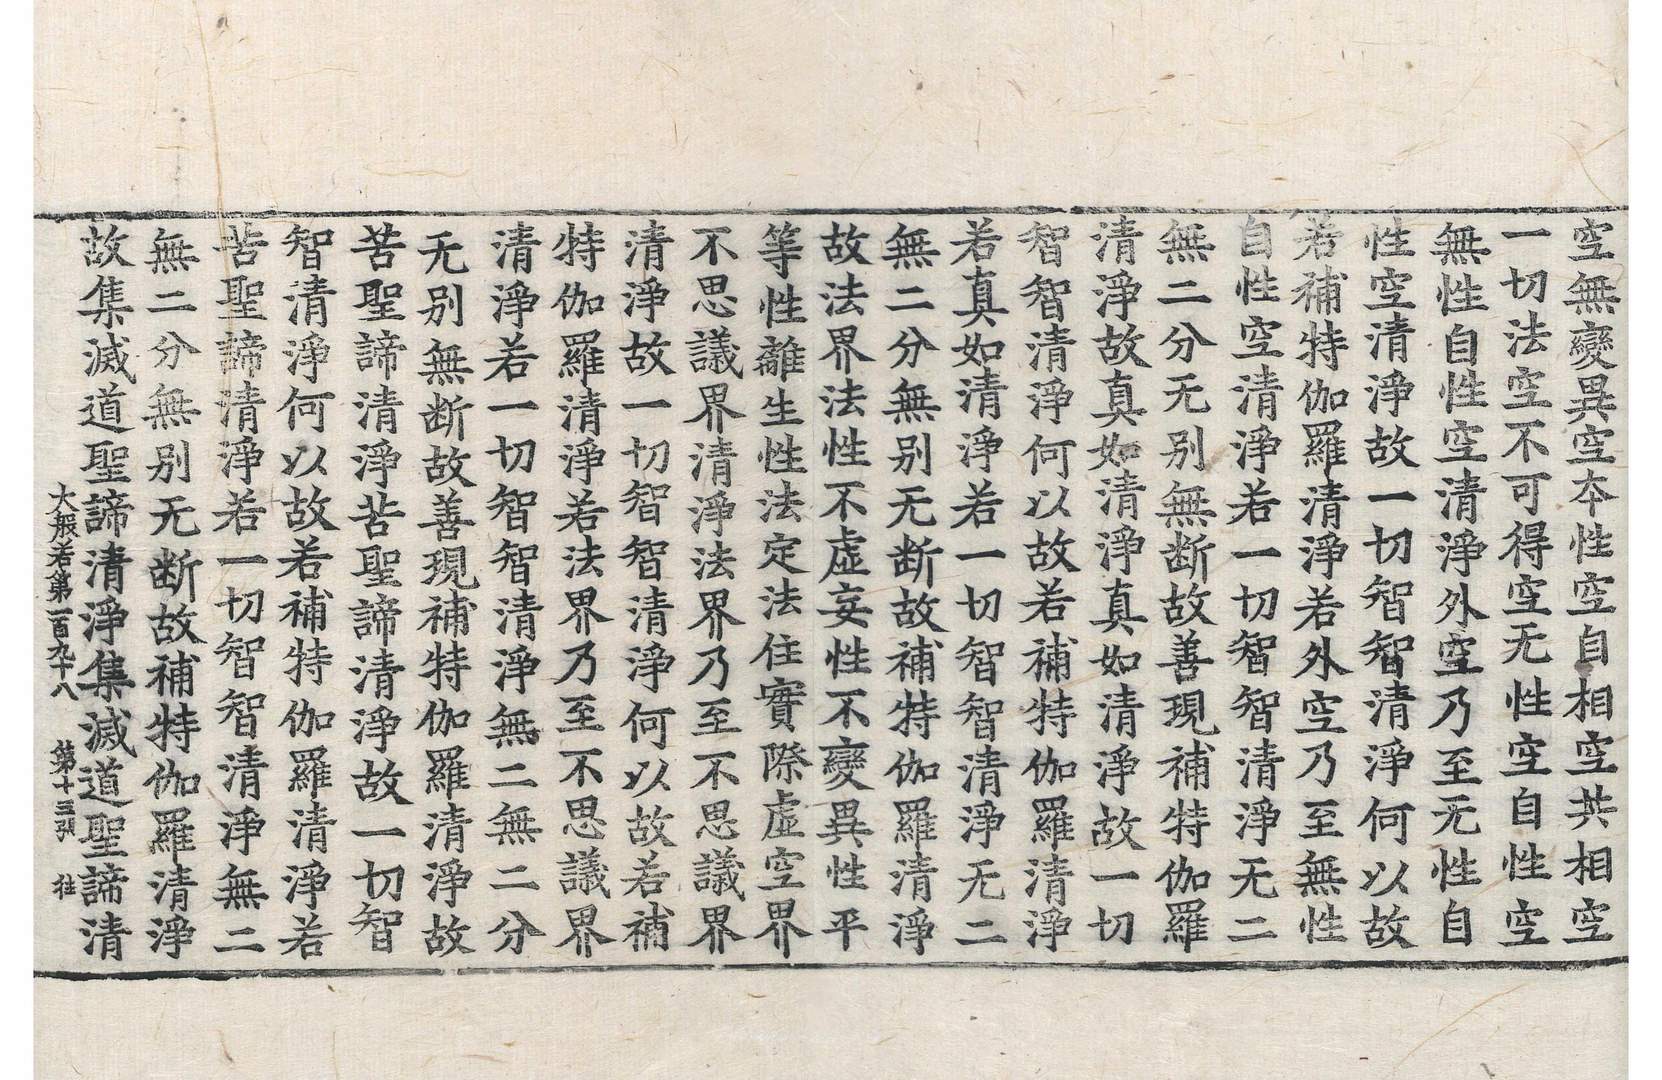 空無變異空本性空自相空共相空
一切法空不可得空无性空自性空
無性自性空清淨外空乃至无性自
性空清淨故一切智智清淨何以故
若補特伽羅清淨若外空乃至無性
自性空清淨若一切智智清淨无二
無二分无别無断故善現補特伽羅
清淨故真如清淨真如清淨故一切
智智清淨何以故若補特伽羅清淨
若真如清淨若一切智智清淨无二
無二分無别无断故補特伽羅清淨
故法界法性不虚妄性不變異性平
等性離生性法定法住實際虚空界
不思議界清淨法界乃至不思議界
清淨故一切智智清淨何以故若補
特伽羅清淨若法界乃至不思議界
清淨若一切智智清淨無二無二分
无别無断故善現補特伽羅清淨故
苦聖諦清淨苦聖諦清淨故一切智
智清淨何以故若補特伽羅清淨若
苦聖諦清淨若一切智智清淨無二
無二分無别无断故補特伽羅清淨
故集滅道聖諦清淨集滅道聖諦清
大般若第一百九十八 第十三張 往